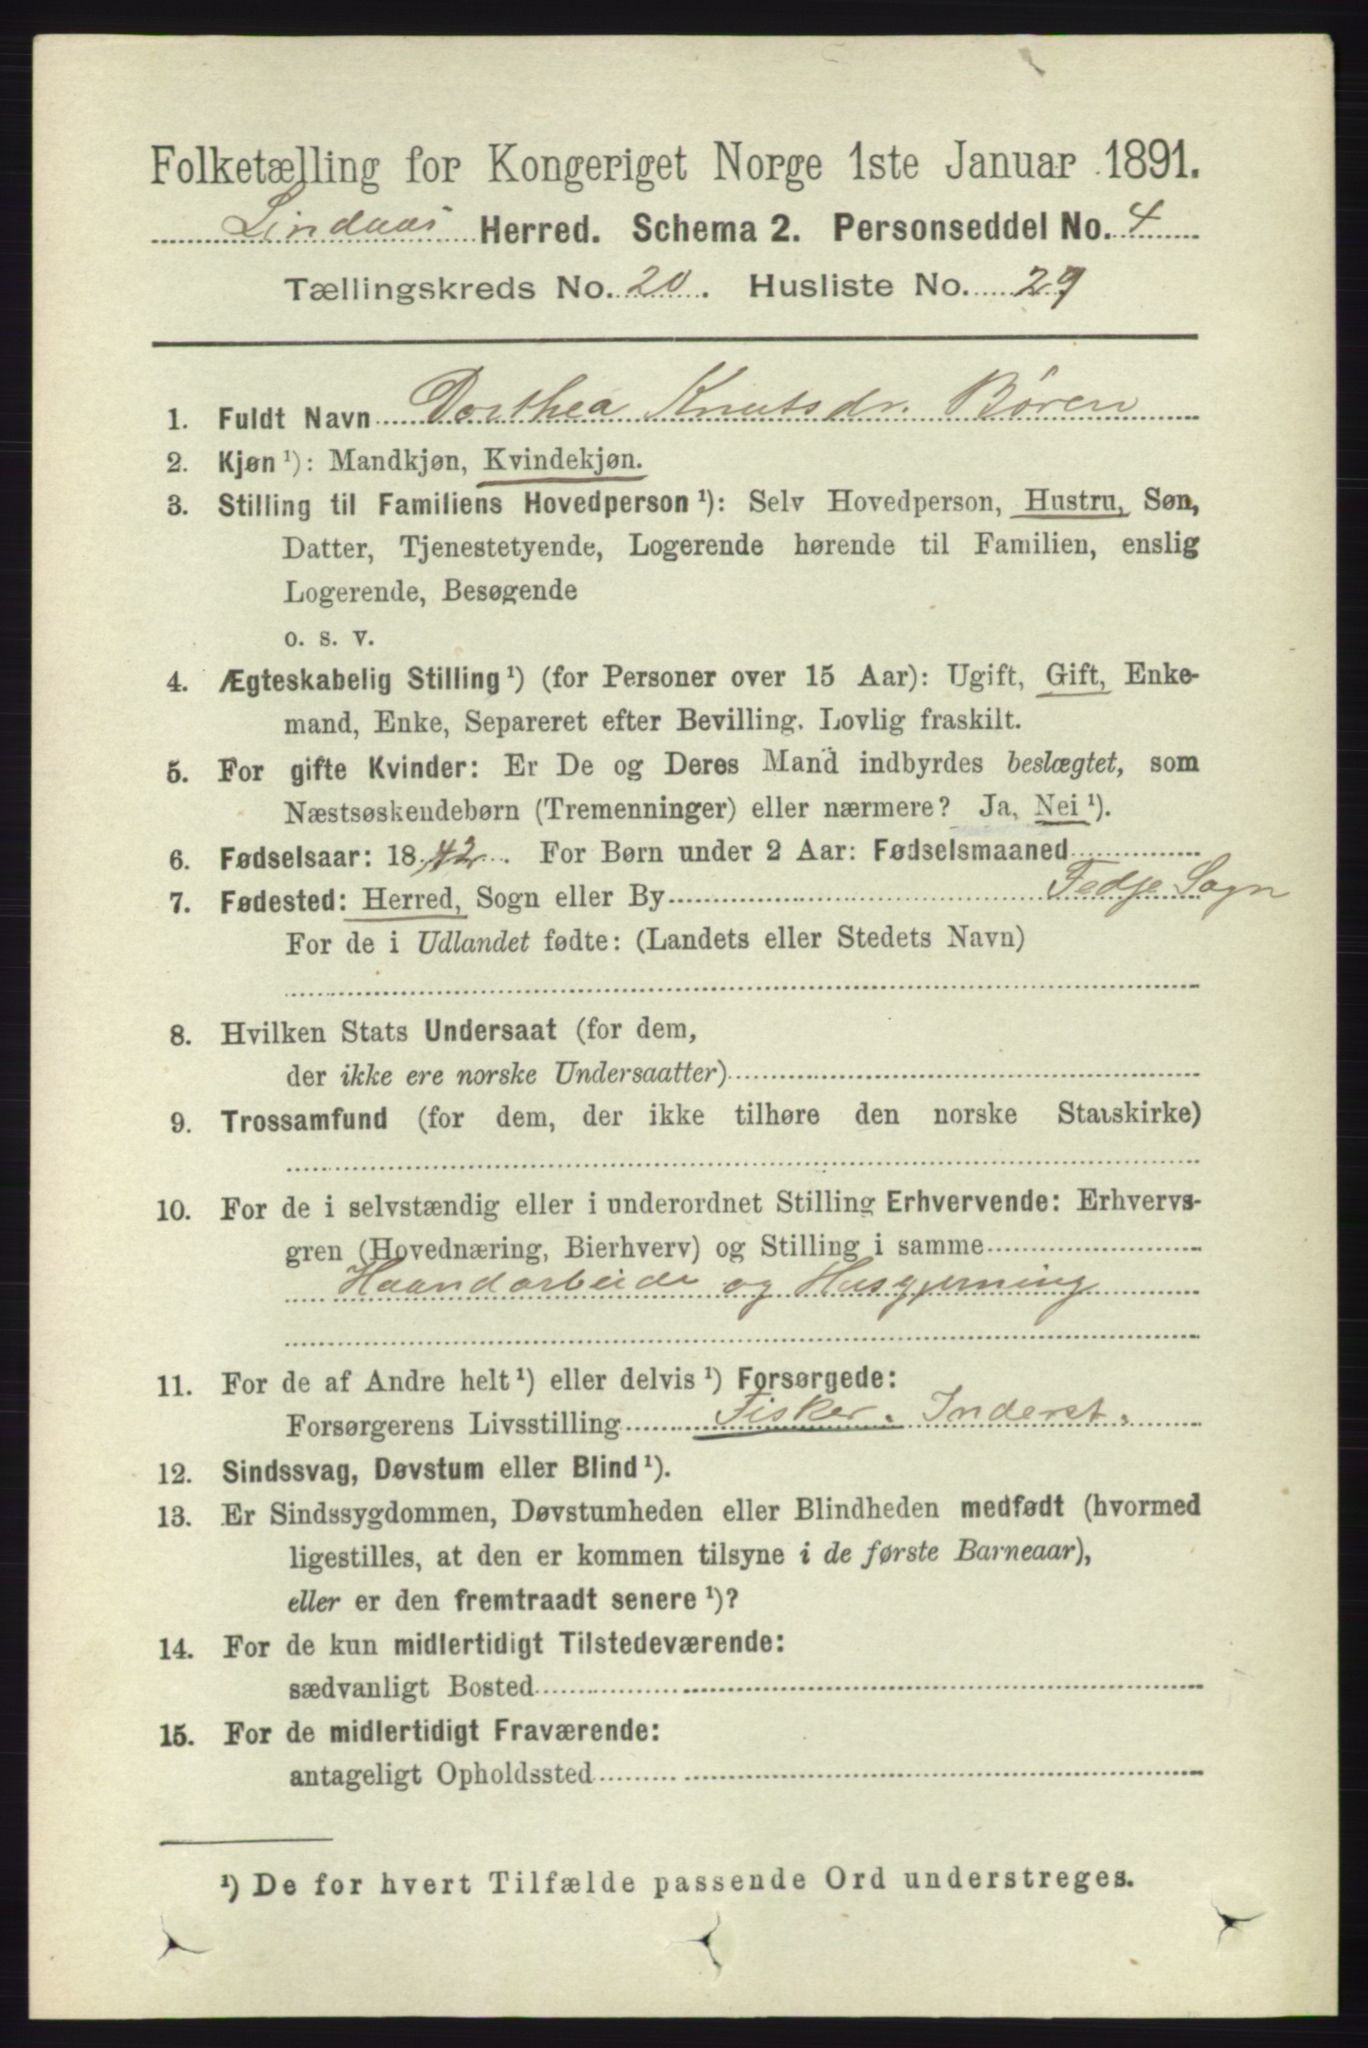 Folketælling for Kongeriget Norge 1ste Januar 1891.
Lindaas Herred. Schema 2. Personseddel No. 4
Tællingskreds No. 20. Husliste No. 29
1. Fuldt Navn Dorthea Knutsdr. Børen
2. Kjøn ¹): Mandkjøn, Kvindekjøn.
3. Stilling til Familiens Hovedperson ¹): Selv Hovedperson, Hustru, Søn,
Datter, Tjenestetyende, Logerende hørende til Familien, enslig
Logerende, Besøgende
o. s. v.
4. Ægteskabelig Stilling ¹) (for Personer over 15 Aar): Ugift, Gift, Enke-
mand, Enke, Separeret efter Bevilling. Lovlig fraskilt.
5. For gifte Kvinder: Er De og Deres Mand indbyrdes beslægtet, som
Næstsøskendebørn (Tremenninger) eller nærmere? Ja, Nei ¹).
6. Fødselsaar: 1842. For Børn under 2 Aar: Fødselsmaaned
7. Fødested: Herred, Sogn eller By Fedje Sogn
For de i Udlandet fødte: (Landets eller Stedets Navn)
8. Hvilken Stats Undersaat (for dem,
der ikke ere norske Undersaatter)
9. Trossamfund (for dem, der ikke tilhøre den norske Statskirke)
10. For de i selvstændig eller i underordnet Stilling Erhvervende: Erhvervs-
gren (Hovednæring, Bierhverv) og Stilling i samme
Haandarbeide og Husgjerning
11. For de af Andre helt ¹) eller delvis ¹) Forsørgede:
Forsørgerens Livsstilling Fisker. Inderst.
12. Sindssvag, Døvstum eller Blind ¹).
13. Er Sindssygdommen, Døvstumheden eller Blindheden medfødt (hvormed
ligestilles, at den er kommen tilsyne i de første Barneaar),
eller er den fremtraadt senere ¹)?
14. For de kun midlertidigt Tilstedeværende:
sædvanligt Bosted
15. For de midlertidigt Fraværende:
antageligt Opholdssted
¹) De for hvert Tilfælde passende Ord understreges.